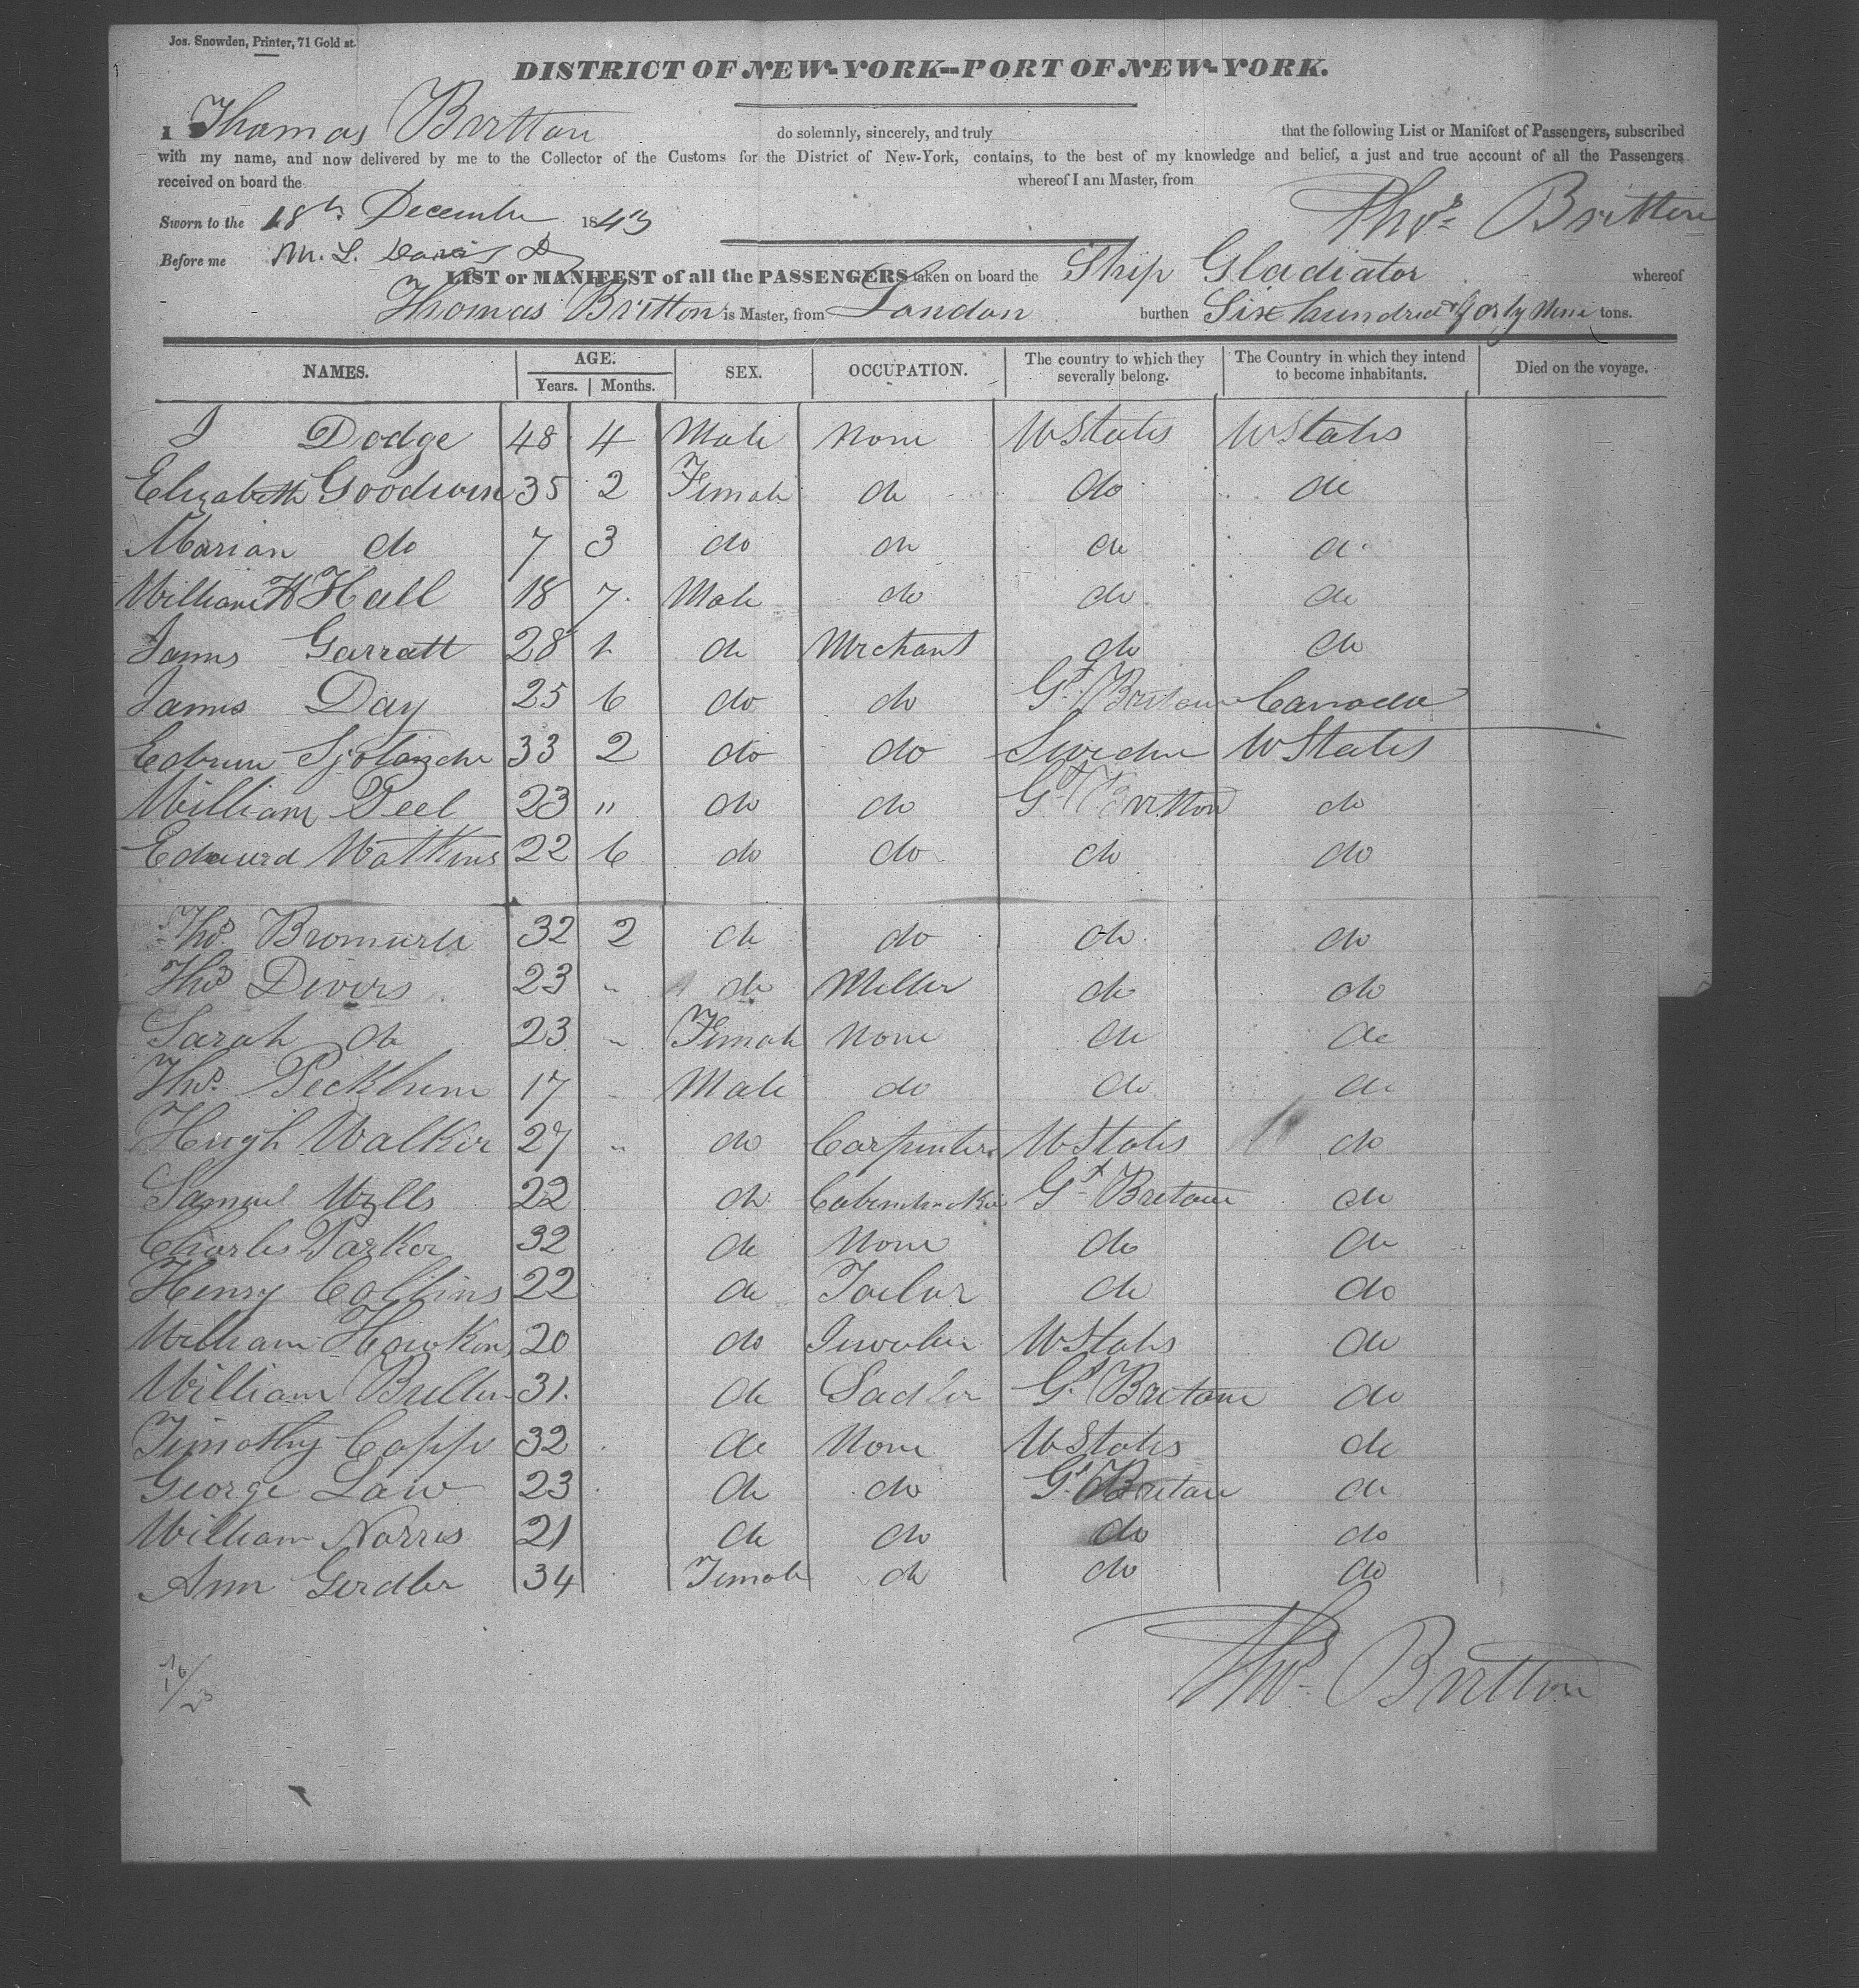 Jos. Snowden, Printer, 71 Gold st.
DISTRICT OF NEW-YORK--PORT OF NEW-YORK.
I Thomas Britton do solemnly, sincerely, and truly that the following List or Manifest of Passengers, subscribed
with my name, and now delivered by me to the Collector of the Customs for the District of New-York, contains, to the best of my knowledge and belief, a just and true account of all the Passengers
received on board the whereof I am Master, from
Thos Britton
Sworn to the 18th December 1843
Before me M. L. Davis
LIST or MANIFEST of all the PASSENGERS taken on board the Ship Gladiator whereof
Thomas Britton is Master, from London burthen Six hundred & forty Nine tons.
NAMES. AGE. Years. Months. SEX. OCCUPATION. The country to which they severally belong. The Country in which they intend to become inhabitants. Died on the voyage.
J Dodge 48 4 Male None U States U States
Elizabeth Goodwin 35 2 Female do do do
Marian do 7 3 do do do do
William H Hall 18 7 Male do do do
James Garratt 28 1 do Merchant do do
James Day 25 6 do do Gt Britain Canada
33 2 do do Sweden U States
William Peel 23 " do do Gt Britton do
Edward Watkins 22 6 do do do do
Thos 32 2 do do do do
Thos Divers 23 " do Miller do do
Sarah do 23 " Female None do do
Thos Peckham 17 " Male do do do
Hugh Walker 27 " do Carpenter U States do
Samuel Wells 22 do Cabinetmaker Gt Britain do
Charles Parker 32 do None do do
Henry Collins 22 do Tailor do do
William Hawkins 20 do Jeweler U States do
William Bullen 31 do Sadler Gt Britain do
Timothy Capp 32 do None U States do
George Law 23 do do Gt Britain do
William Norris 21 do do do do
Ann Girdler 34 Female do do do
Thos Britton